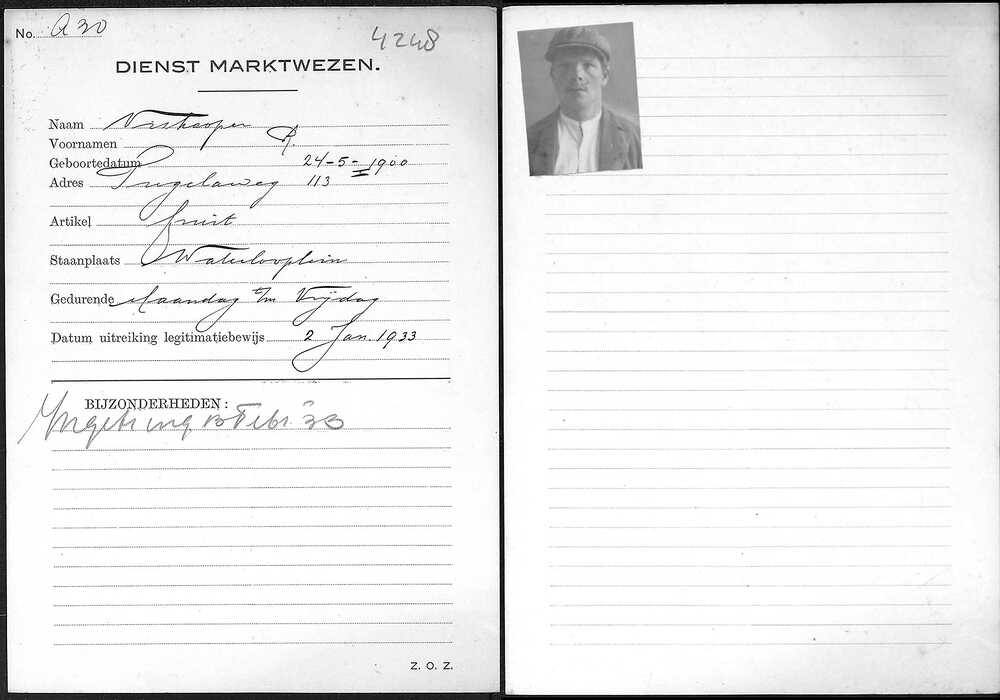 No. A 30
4248
DIENST MARKTWEZEN.
Naam Verhaapen
Voornamen R.
Geboortedatum 24-5-1900
Adres 113
Artikel fruit
Staanplaats Waterlooplein
Gedurende Maandag t/m Vrijdag
Datum uitreiking legitimatiebewijs 2 Jan. 1933
BIJZONDERHEDEN:
Febr. 33
Z. O. Z.